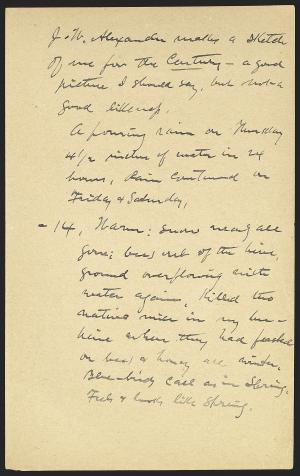 J. W. Alexander makes a sketch
of me for the Century – a good
picture I should say, but not a
good likeness.
A pouring rain on Thursday
4 1/2 inches of water in 24
hours, Rain continued on
Friday & Saturday,
- 14, Warm: snow nearly all
gone; bees out of the hive,
ground overflowing with
water again, Killed two
native mice in my bee-
hive where they had feasted
on bees & honey all winter.
Blue-birds call as in Spring.
Feels & looks like Spring.